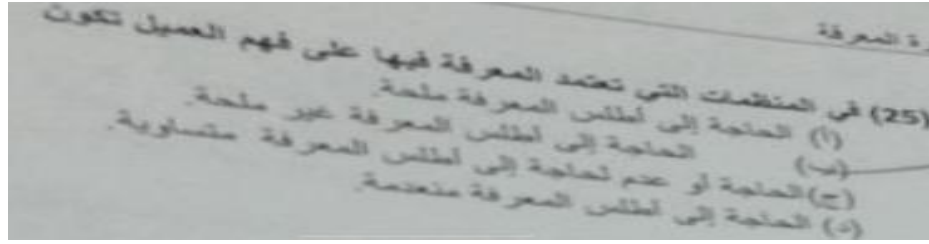 رة المعرفة
(25) في المنظمات التي تعتمد المعرفة فيها على فهم العميل تكون
(أ) الحاجة إلى أطلس المعرفة ملحة.
(ب) الحاجة إلى أطلس المعرفة غير ملحة.
(ج) الحاجة أو عدم لحاجة إلى أطلس المعرفة متساوية.
(د) الحاجة إلى أطلس المعرفة منعدمة.